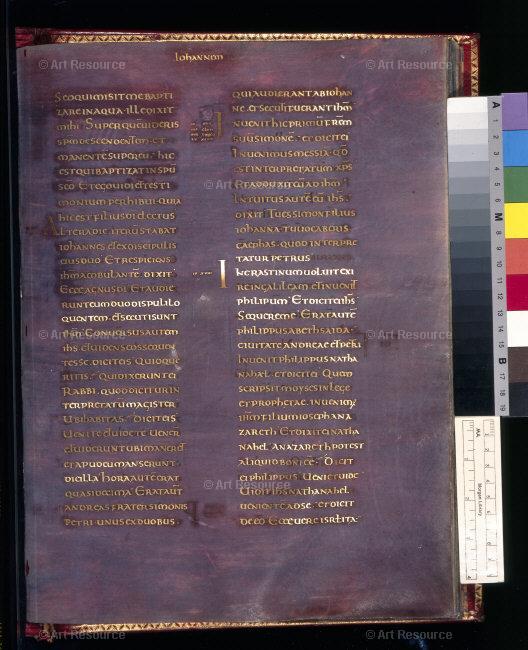 Iohannem
Sed qui misit me bapti
zare in aqua · ille dixit
mihi · Super quem uideris
spm descendentem · et
manentem super eu · hic
est qui baptizat in spu
sco · Et ego uidi et testi
monium perhibui · quia
hic est filius di electus
Altera die iterū stabat
iohannes et ex discipulis
eius duo · Et respiciens
ihm ambulantē · dixit ·
Ecce agnus di · Et audie
runt eum duo discipuli lo
quentem · et secuti sunt
ihm · Conuersus autem
ihs et uidens eos sequen
tes se · dicit eis · Quid que
ritis · Qui dixerunt ei
Rabbi · quod dicitur in
terpretatum magister
Ubi habitas · Dicit eis
Uenite et uidete · Uener
et uiderunt ubi maneret
et apud eum manserunt
die illa · hora aut erat
quasi decima · Erat aut
andreas frater simonis
petri · unus ex duobus ·
qui audierant ab iohan
ne · et secuti fuerant ihm
Inuenit hic primū frēm
suū simonē · et dicit ei
Inuenimus messia · qd
est interpretatum xps
Et adduxit eū ad ihm ·
Intuitus aut eū ihs ·
dixit · Tu es simon filius
iohanna · tu uocaberis
cephas · quod interpre
tatur petrus
In crastinum uoluit exi
re in galileam · et inuenit
philippum · Et dicit ei ihs
Sequere me · Erat aut
philippus a bethsaida ·
ciuitate andreae et petri
Inuenit philippus natha
nahel · et dicit ei · Quem
scripsit moyses in lege
et prophetae · inuenim;
ihm filium ioseph a na
zareth · Et dixit ei natha
nahel · A nazareth potest
aliquid boni ee · Dicit
ei philippus · Ueni et uide
Uidit ihs nathanahel
uenientem ad se · et dicit
de eo · Ecce uere isrlita ·
© Art Resource
© Art Resource
© Art Resource
© Art Resource
© Art Resource
© Art Resource
© Art Resource
© Art Resource
© Art Resource
A 1 2 3 4 5 6 M 8 9 10 11 12 13 14 15 B 17 18 19
Morgan Library